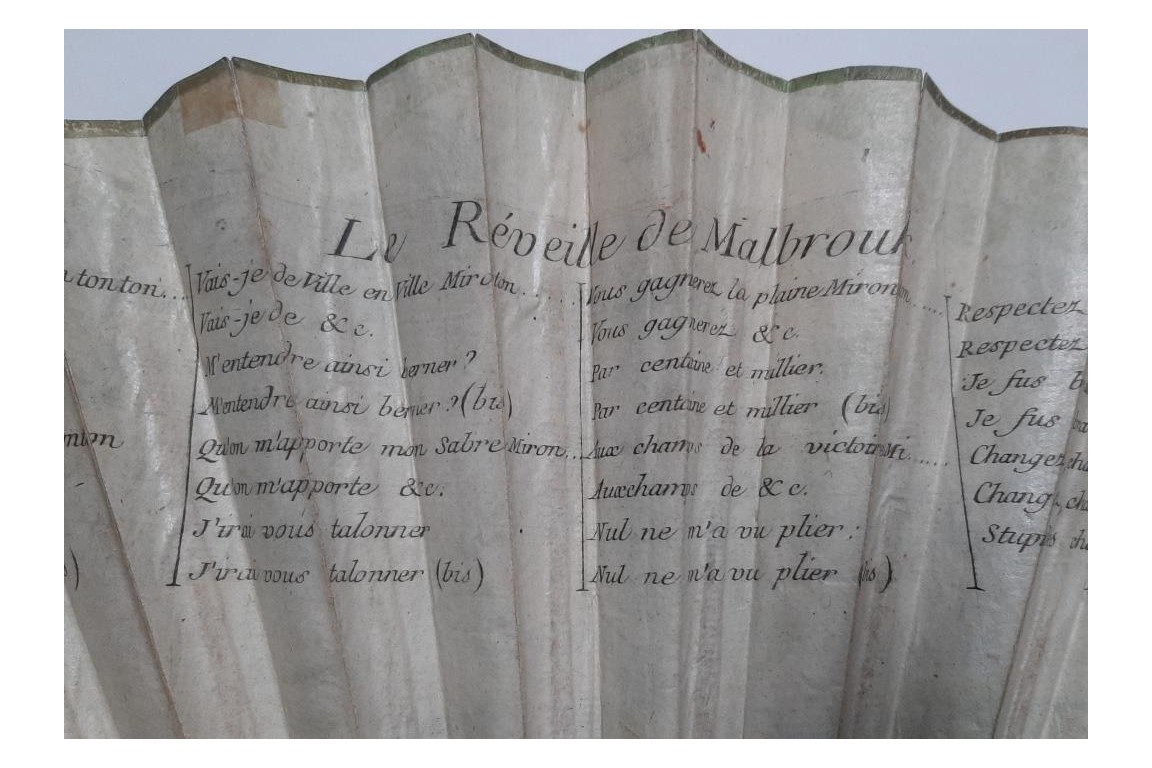 Le Réveille de Malbrouk
n tonton...
nton
s)
Vais-je de Ville en Ville Miroton......
Vais-je de &c.
M'entendre ainsi berner?
M'entendre ainsi berner? (bis)
Qu'on m'apporte mon Sabre Miron...
Qu'on m'apporte &c.
J'irai vous talonner
J'irai vous talonner (bis)
Vous gagnerez la plaine Mironton.....
Vous gagnerez &c.
Par centaine et millier.
Par centaine et millier (bis)
Aux champs de la victoire Mi.....
Aux champs de &c.
Nul ne m'a vu plier:
Nul ne m'a vu plier (bis)
Respectez
Respectez
Je fus
Je fus
Changez
Chang
Stupis